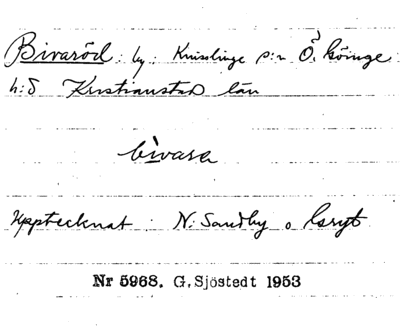 Bivaröd : by : Knislinge s:n Ö. Göinge
h:d Kristianstad län
bìvara
Upptecknat : N. Sandby o Gryt
Nr 5968. G. Sjöstedt 1953